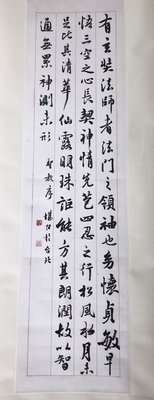 有玄奘法師者法門之領袖也幼懷貞敏早
悟三空之心長契神情先苞四忍之行松風水月未
足比其清華仙露明珠詎能方其朗潤故以智
通無累神測未形 聖教序